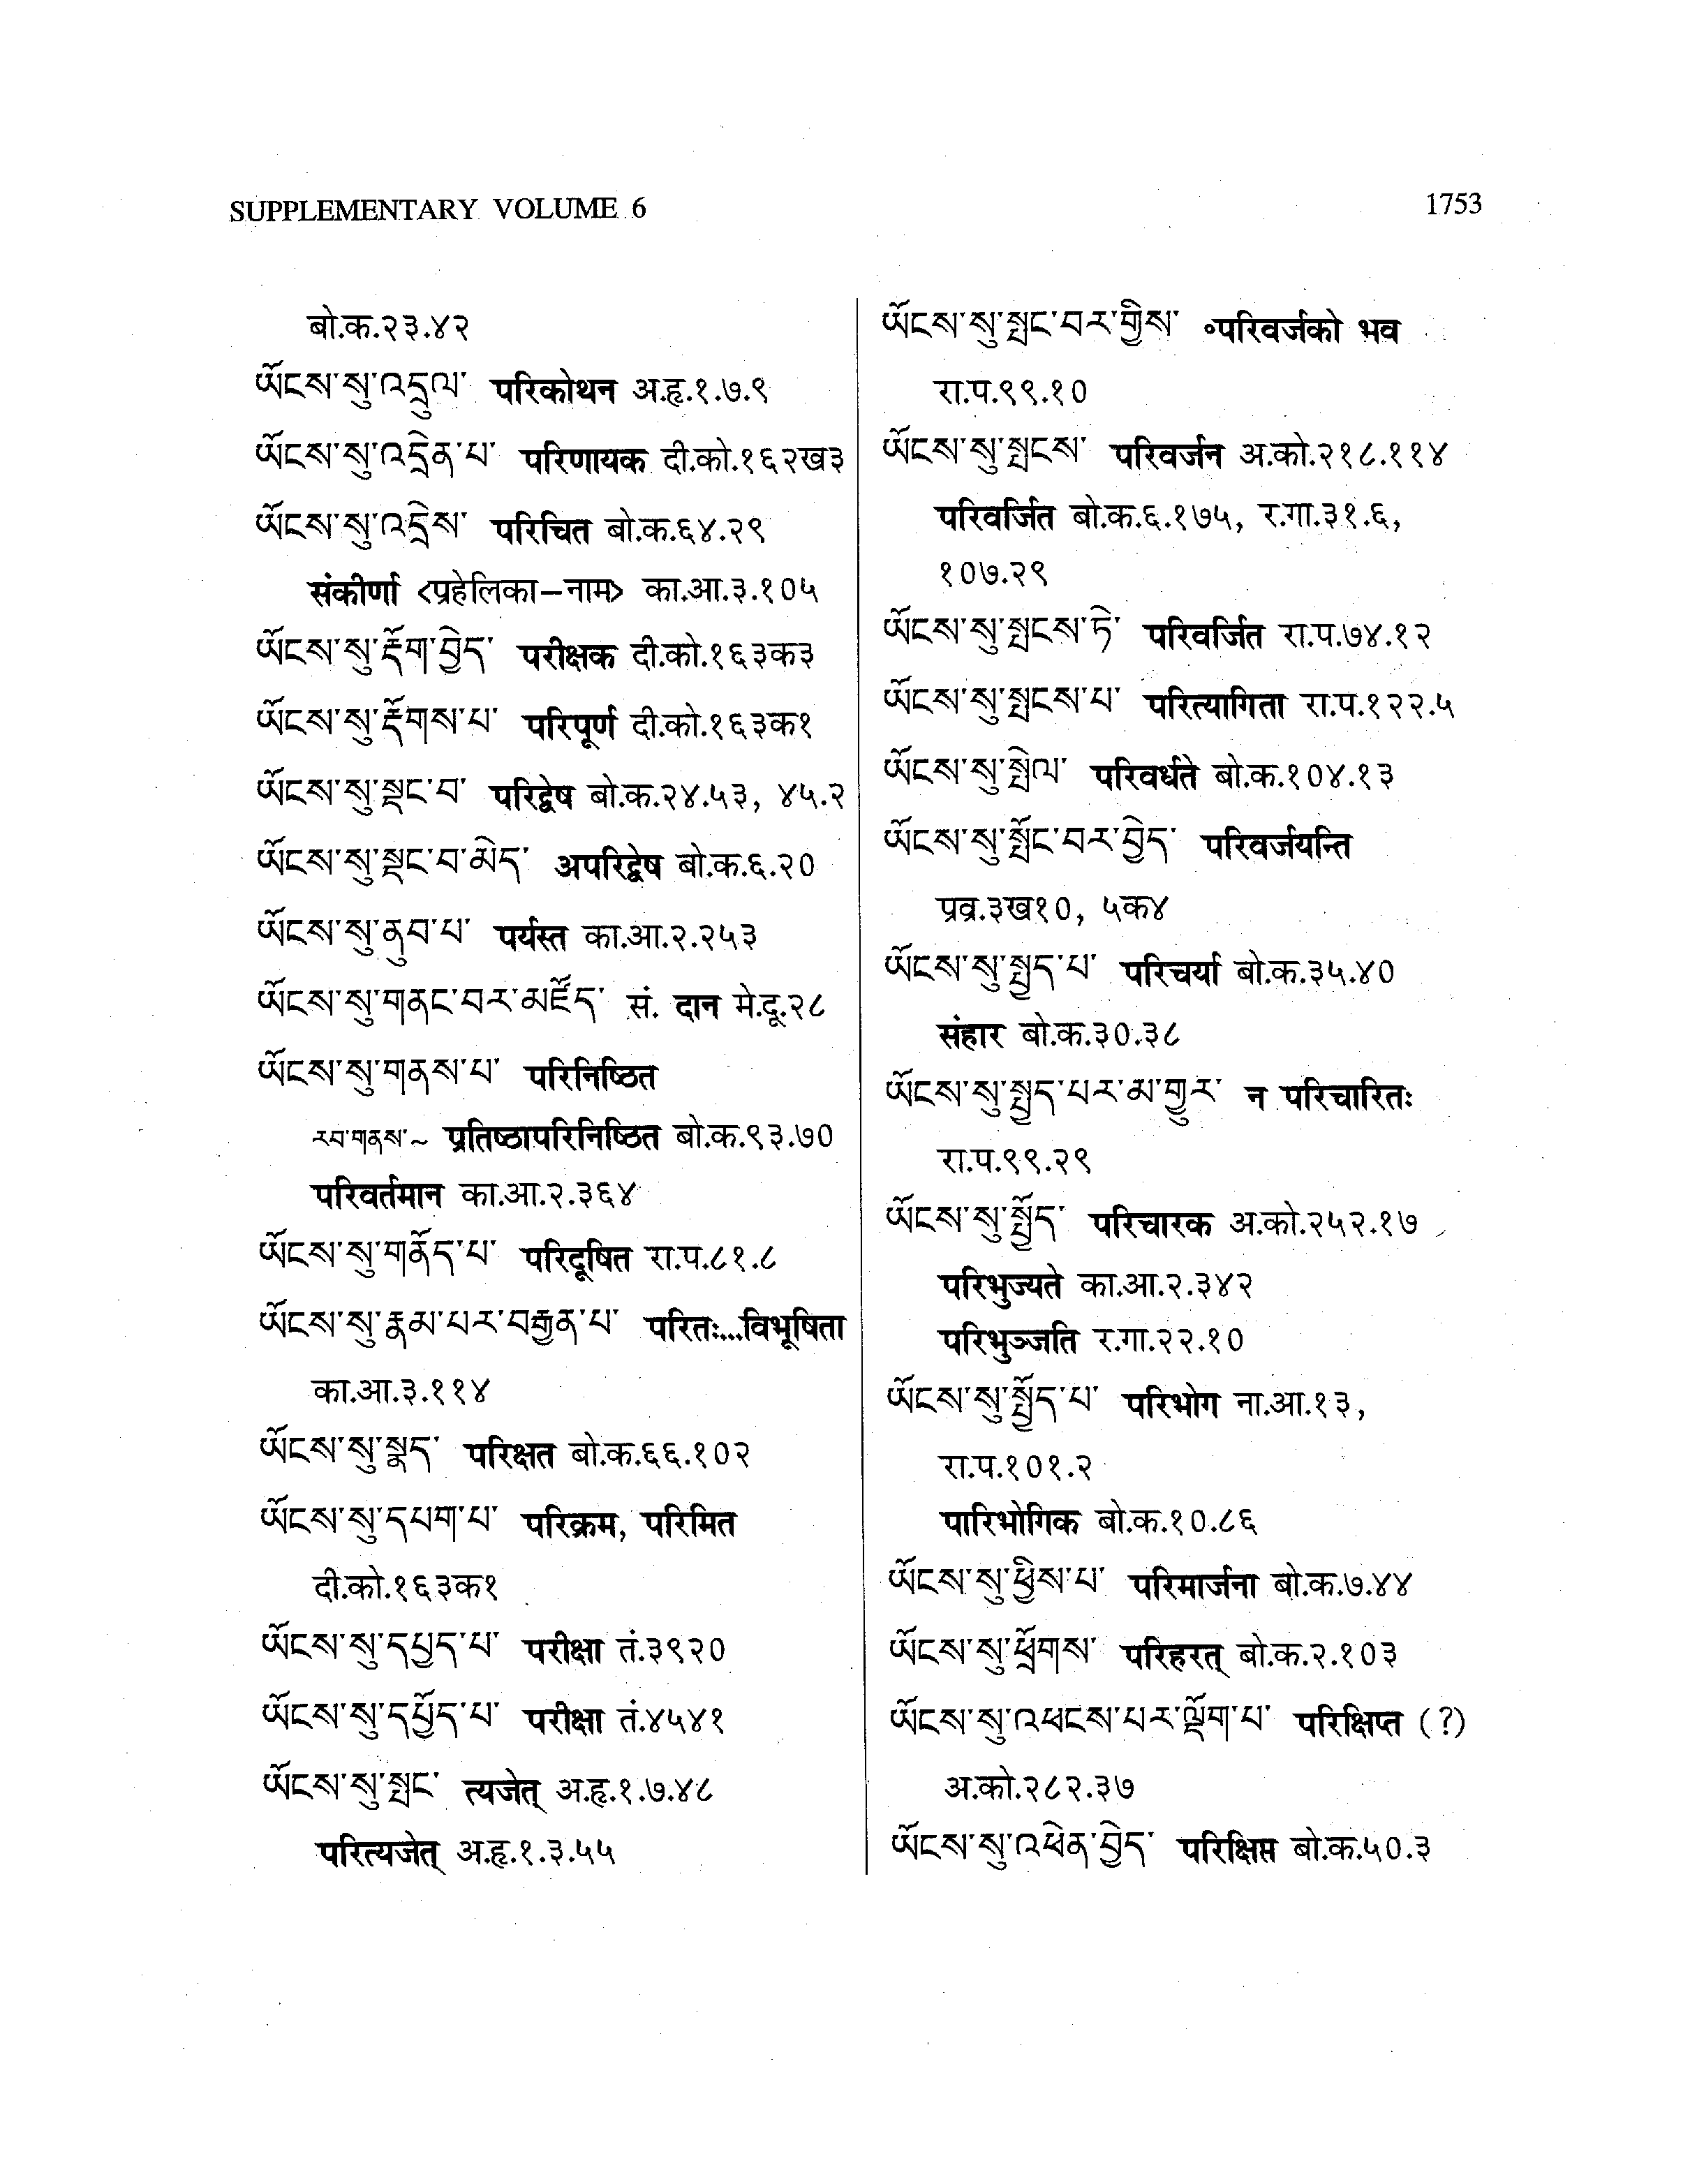 SUPPLEMENTARY VOLUME 6
1753
बो.क.२३.४२
ཡོངས་སུ་འདྲུལ་ परिकोथन अ.हृ.१.७.९
ཡོངས་སུ་འདྲེན་པ་ परिणायक दी.को.१६२ख३
ཡོངས་སུ་འདྲེས་ परिचित बो.क.६४.२९
संकीर्णा <प्रहेलिका–नाम> का.आ.३.१०५
ཡོངས་སུ་རྡོག་བྱེད་ परीक्षक दी.को.१६३क३
ཡོངས་སུ་རྫོགས་པ་ परिपूर्ण दी.को.१६३क१
ཡོངས་སུ་སྡང་བ་ परिद्वेष बो.क.२४.५३, ४५.२
ཡོངས་སུ་སྡང་བ་མེད་ अपरिद्वेष बो.क.६.२०
ཡོངས་སུ་ནུབ་པ་ पर्यस्त का.आ.२.२५३
ཡོངས་སུ་གནང་བར་མཛོད་ सं. दान मे.दू.२८
ཡོངས་སུ་གནས་པ་ परिनिष्ठित
རབ་གནས་~ प्रतिष्ठापरिनिष्ठित बो.क.९३.७०
परिवर्तमान का.आ.२.३६४
ཡོངས་སུ་གནོད་པ་ परिदूषित रा.प.८१.८
ཡོངས་སུ་རྣམ་པར་བརྒྱན་པ་ परितः...विभूषिता
का.आ.३.११४
ཡོངས་སུ་སྣད་ परिक्षत बो.क.६६.१०२
ཡོངས་སུ་དཔག་པ་ परिक्रम, परिमित
दी.को.१६३क१
ཡོངས་སུ་དཔྱད་པ་ परीक्षा तं.३९२०
ཡོངས་སུ་དཔྱོད་པ་ परीक्षा तं.४५४१
ཡོངས་སུ་སྤང་ त्यजेत् अ.हृ.१.७.४८
परित्यजेत् अ.हृ.१.३.५५
ཡོངས་སུ་སྤང་བར་གྱིས་ ॰परिवर्जको भव
रा.प.९९.१०
ཡོངས་སུ་སྤངས་ परिवर्जन अ.को.२१८.११४
परिवर्जित बो.क.६.१७५, र.गा.३१.६,
१०७.२९
ཡོངས་སུ་སྤངས་ཏེ་ परिवर्जित रा.प.७४.१२
ཡོངས་སུ་སྤངས་པ་ परित्यागिता रा.प.१२२.५
ཡོངས་སུ་སྤེལ་ परिवर्धते बो.क.१०४.१३
ཡོངས་སུ་སྤོང་བར་བྱེད་ परिवर्जयन्ति
प्रव्र.३ख१०, ५क४
ཡོངས་སུ་སྤྱད་པ་ परिचर्या बो.क.३५.४०
संहार बो.क.३०.३८
ཡོངས་སུ་སྤྱད་པར་མ་གྱུར་ न परिचारितः
रा.प.९९.२९
ཡོངས་སུ་སྤྱོད་ परिचारक अ.को.२५२.१७
परिभुज्यते का.आ.२.३४२
परिभुञ्जति र.गा.२२.१०
ཡོངས་སུ་སྤྱོད་པ་ परिभोग ना.आ.१३,
रा.प.१०१.२
पारिभोगिक बो.क.१०.८६
ཡོངས་སུ་ཕྱིས་པ་ परिमार्जना बो.क.७.४४
ཡོངས་སུ་ཕྲོགས་ परिहरत् बो.क.२.१०३
ཡོངས་སུ་འཕངས་པར་ལྡོག་པ་ परिक्षिप्त (?)
अ.को.२८२.३७
ཡོངས་སུ་འཕེན་བྱེད་ परिक्षिप्त बो.क.५०.३